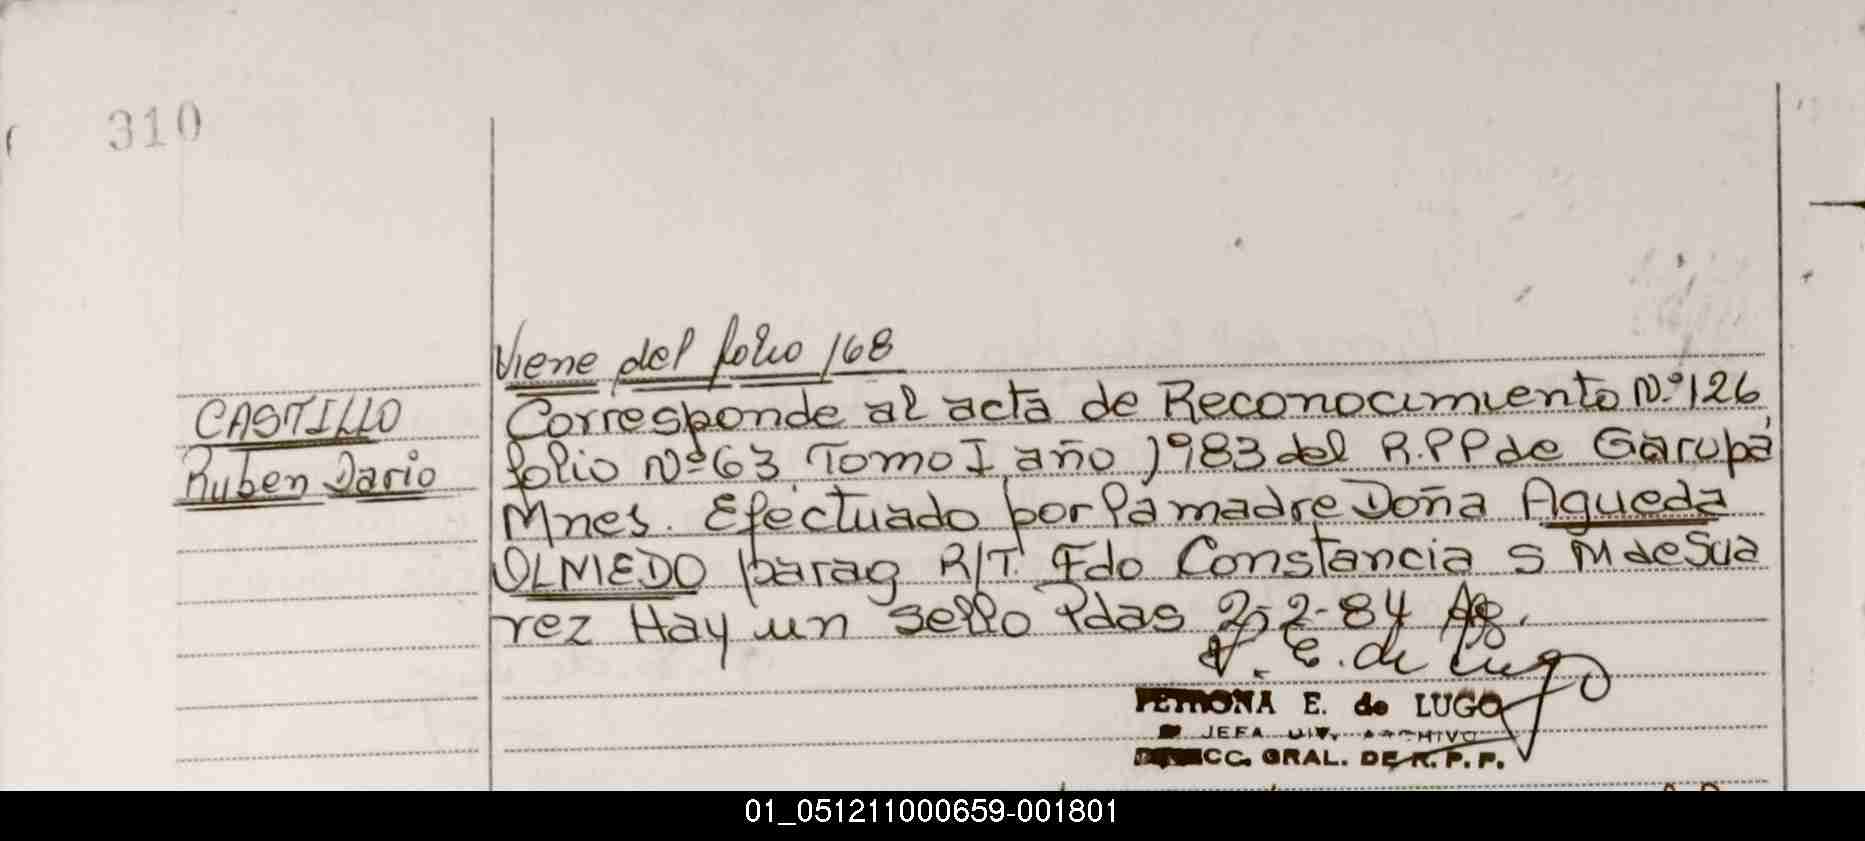 310
Viene del folio 168
CASTILLO
Ruben Dario
Corresponde al acta de Reconocimiento Nº 126
folio Nº 63 Tomo I año 1983 del R.P.P de Garupá
Mnes. Efectuado por la madre Doña Agueda
OLMEDO parag R/T. Fdo Constancia S M de Sua
rez Hay un sello Pdas 2-2-84
P. E. de Lugo
PETRONA E. de LUGO
JEFA DIV. ARCHIVO
DIRECC. GRAL. DE R.P.P.
01_051211000659-001801